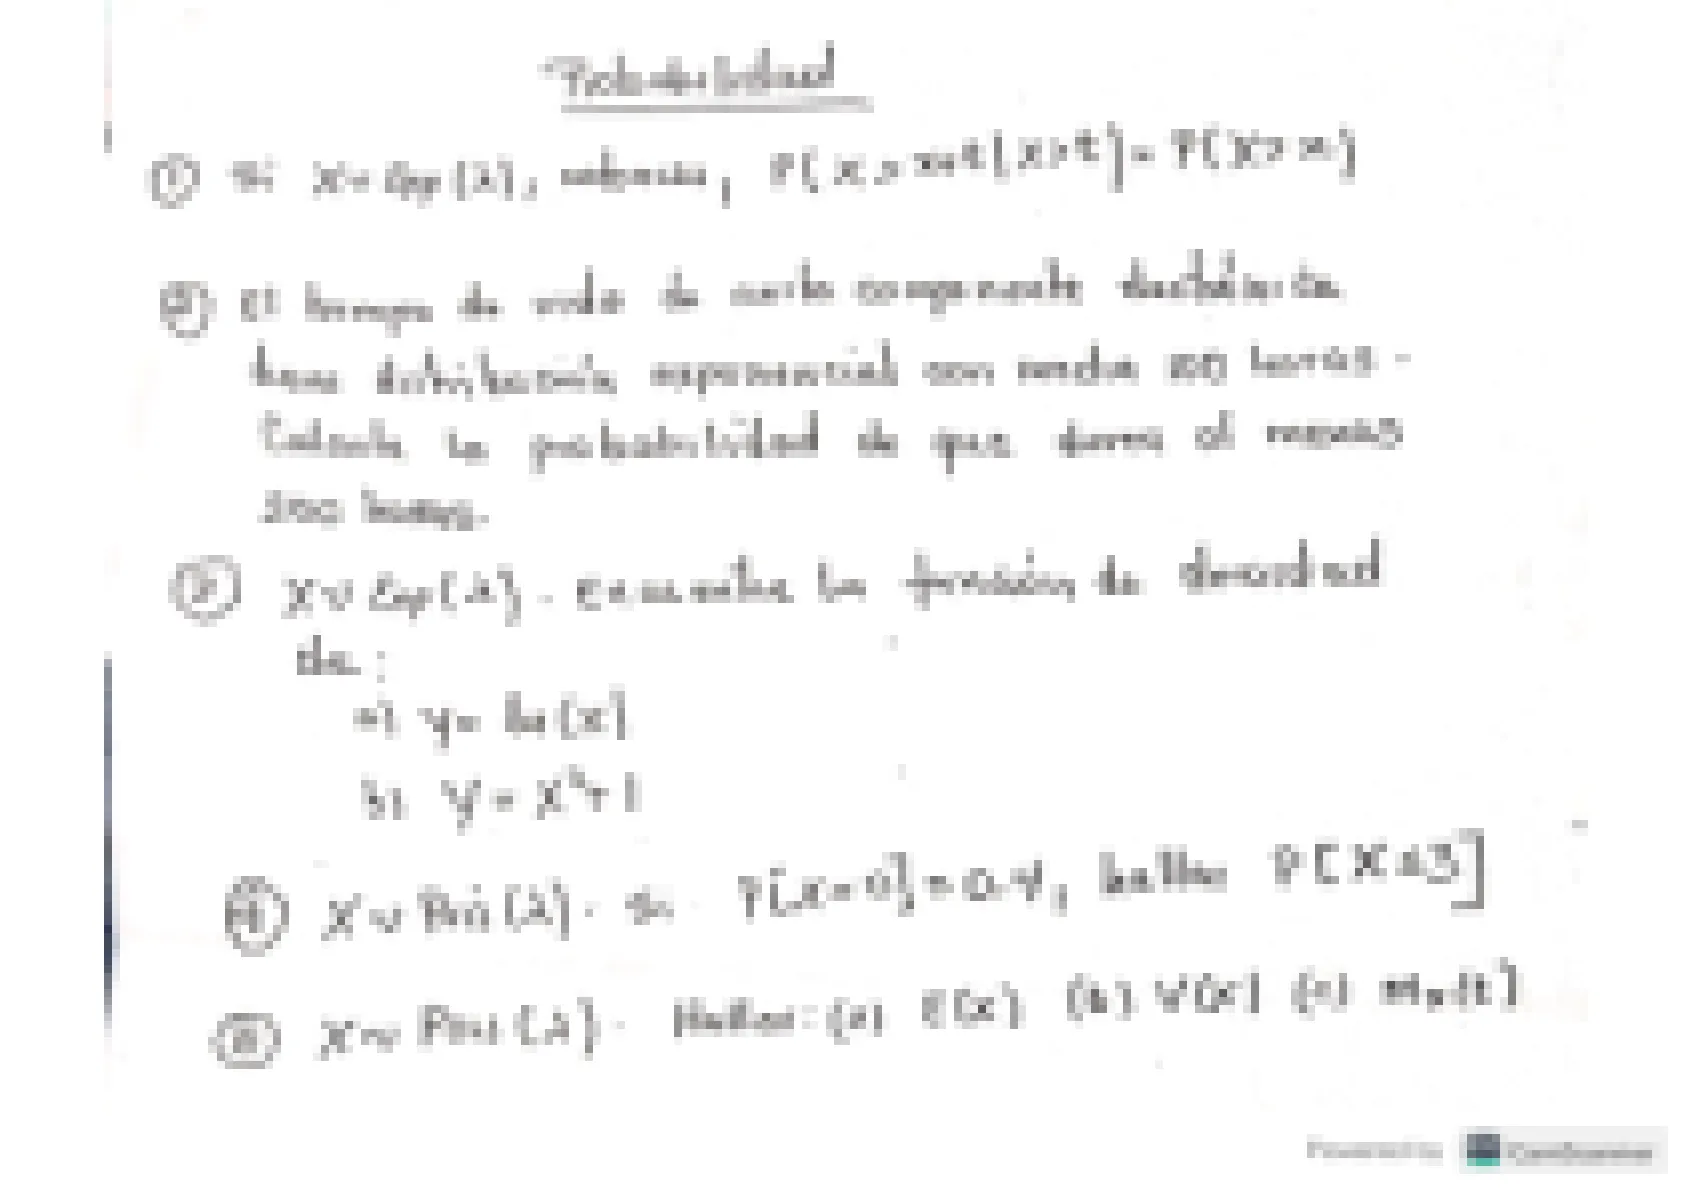 Probabilidad
① Si X~Exp(λ), entonces, P[X > x+t | X>t] = P[X> x]
② El tiempo de vida de cierto componente
tiene distribución exponencial con media horas.
Calcule la probabilidad de que dure al menos
200 horas.
③ X~Exp(λ). Encuentre la función de densidad
de:
a) y= ln(X)
b) y = +1
④ X~Poi(λ). Si P[X=0]=0.4, hallar P[X≤3]
X~Poi(λ). Hallar: (a) E(X) (b) V(X) (c) Mx(t)
Powered by CamScanner